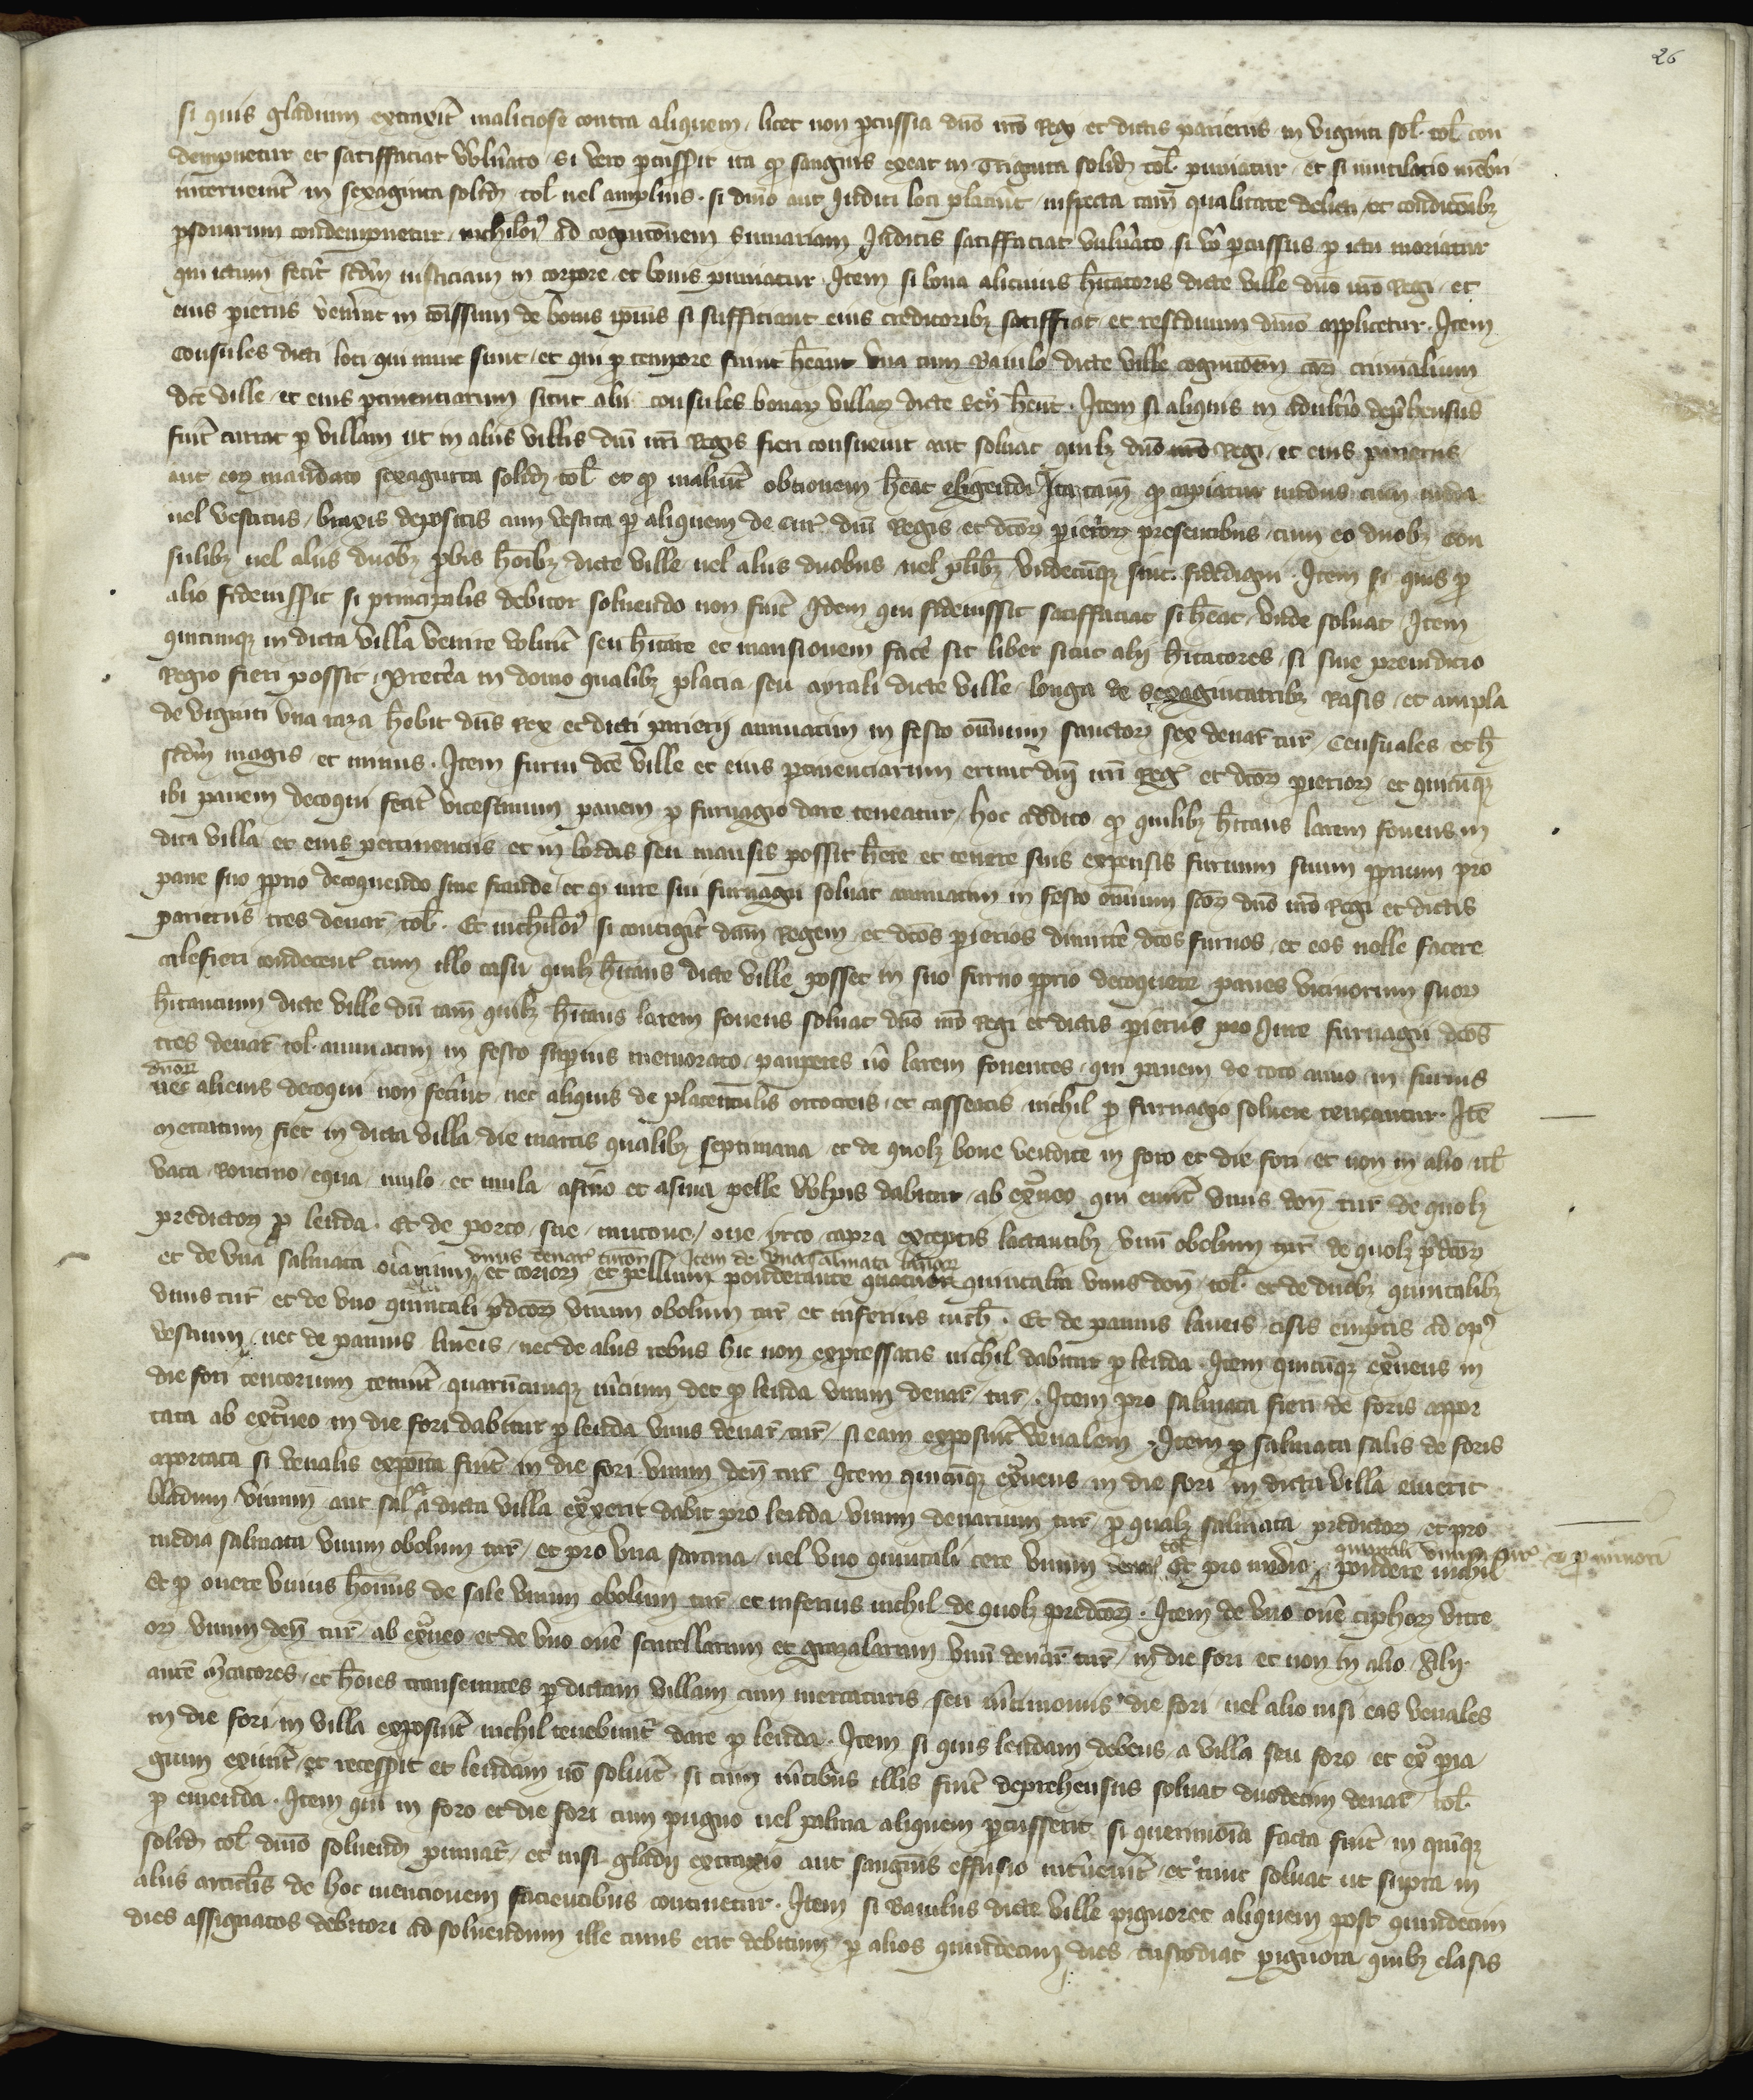 26
si quis gladium extraxit̄ maliciose contra aliquem, licet non p̄cussia dn̄o nr̄o Reg et dictis parieriis in viginti sol. tol. con
dempnetur et satisffaciat vuln̄ato, si vero p̄cusserit ita qd̄ sanguis exeat in Triginta solid̄ tol. puniatur, et si mutilacio mēbri
interuenit̄ in sexaginta solid̄ tol. uel amplius. si dn̄o aut Judici loci placuit̄, inspecta tam̄ qualitate delicti, et condicōnibꝫ
psonarum condempnetur, nichilōi ad cognicōnem summariam Judicis satisffaciat vuln̄ato, si vō p̄cussus p̄ ictu moriatur
qui ictum fecit̄ scd̄m iusticiam in corpore et bonis puniatur. Item si bona alicuius h̄itatoris dicte ville dn̄o nr̄o Regi, et
eius pieriis ven̄int in cōissum de bonis ipius si sufficiant eius creditoribꝫ satisffiat, et residuum dn̄o applicetur. Item
Consules dicti loci qui nunc sunt, et qui p̄ tempore fuint h̄eant vna cum Baiulo dicte ville cognicōem cāꝝ criminalium
dcē ville, et eius p̄tinenciarum sicut alii consules bonaꝝ villaꝝ dicte sen̄ h̄ent. Item si aliquis in adultīo dep̄hensus
fuit̄ currat p̄ villam ut in aliis villis dn̄i nr̄i Regis fieri consueuit aut soluat quilꝫ dn̄o nr̄o Regi, et eius parieriis
aut eoꝝ mandato sexaginta solid̄ tol. et qd̄ maluit̄ obtionem h̄eat eligendi Ita tam̄ qd̄ capiatur nudus cum nuda
uel vestitus, braxis depositis cum vestita p̄ aliquem de cur̄ dn̄i Regis et dcōꝝ pierioꝝ presentibus, cum eo duobꝫ con
sulibꝫ uel aliis duobꝫ p̄bis hōibꝫ dicte ville uel aliis duobus, uel pl̄ibꝫ vndecūqꝫ sint. fidedigni. Item si quis p̄
alio fideiusserit si principalis debitor soluendo non fuit̄ Idem qui fideiussit satisffaciat si h̄eat, vnde soluat, Item
quicunqꝫ in dicta villa venire voluit̄ seu h̄itare et mansionem facē sit liber sicut alij h̄itatores, si sine preiudicio
Regio fieri possit, Pretēa in domo qualibꝫ placia seu ayrali dicte ville longa de sexagintatribꝫ Rasis, et ampla
de viginti vna raza hēbit dn̄s Rex et dicti parierij annuatim in festo ōnium sanctoꝝ sex denar̄ tur̄, Censuales, et h̄
scd̄m magis, et minus. Item furni dcē ville et eius p̄tinenciarum erunt dn̄i nr̄i Reḡ et dcōꝝ pierioꝝ et quicūqꝫ
ibi panem decoqui fecit̄ vicesimum panem p̄ furnagio dare teneatur, hoc addito, qd̄ quilibꝫ h̄itans larem fouens in
dicta villa et eius pertinenciis et in bordis seu mansis possit h̄ere et tenere suis expensis furnum suum pprium pro
pane suo pprio decoquendo sine fraude, et p̄ iure sui furnagii soluat annuatim in festo ōnium scōꝝ dn̄o nr̄o Regi et dictis
parieriis tres denar̄ tol. Et nichilōi si contigit̄ dn̄m Regem, et dcōs pierios dimittē dcōs furnos, et eos nolle facere
calefieri condecent̄ cum illo casu quilꝫ h̄itans dicte ville posset in suo furno pprio decoquere panes vicinorum suoꝝ
h̄itantium dicte ville dū tam̄ quilꝫ h̄itans larem fouens soluat dn̄o nr̄o Regi et dictis pieriis pro Jure furnagii dcōs
tres denar̄ tol. annuatim in festo supius memorato, pauperes v̄o larem fouentes, qui panem de toto anno in furnis
dnoꝝ
nec alienis decoqui non fecint, nec aliquis de placentulis ortocreis, et casseatis nichil p̄ furnagio soluere teneantur. Itē
mercatum fiet in dicta villa die martis qualibꝫ septimana, et de quolꝫ boue vendito in foro et die fori, et non in alio, ul̄
vaca, Roncino, equa, mulo, et mula, asino et asina pelle vulpis dabitur, ab ext̄neo qui emit̄ vnus den̄ tur̄ de quolꝫ
predictoꝝ p̄ leuda. Et de porco, sue, mutone, oue, yrco, capra, exceptis lactantibꝫ vnū obolum tur̄ de quolꝫ p̄dcōꝝ
vnus denar̄ turon̄ Item de vna salmata lanaꝝ
et de vna salmata oīariuum, et corioꝝ et pellium ponderante quatuor quintalia vnus den̄ tol. et de duobꝫ quintalibꝫ
vnus tur̄ et de vno quintali p̄dcōꝝ vnum obolum tur̄ et inferius nich̄. Et de pannis laneis cisis emptis ad op̄
vestium, nec de pannis lineis, nec de aliis rebus hic non expressatis nichil dabitur p̄ leuda. Item quicūqꝫ ext̄neus in
die fori tentorium tenuit̄ quarūcunqꝫ m̄cium det p̄ leuda vnum denar̄ tur̄. Item pro salmata ferri de foris appor
tata ab ext̄neo in die fori dabitur p̄ leuda vnus denar̄ tur̄, si eam exposuit̄ venalem. Item p̄ salmata salis de foris
aportata si venalis expoīta fuit̄ in die fori vnum den̄ tur̄ Item quicūqꝫ ext̄neus in die fori in dicta villa emerit
bladum vinum aut sal, & a dicta villa ext̄xerit dabit pro leuda vnum denarium tur̄ p̄ qualꝫ salmata predictoꝝ, et pro
media salmata vnum obolum tur̄, et pro vna sarcina, uel vno quintali cere vnum denar̄ tol. Et pro medio quintali vnus tur̄ & p̄ minori pondere nichil
Et p̄ onere vnius hōinis de sale vnum obolum tur̄ et inferius nichil de quolꝫ predcōꝝ. Item de vno onē ciphoꝝ vitre
oꝝ vnum den̄ tur̄, ab ext̄neo, et de vno onē scutellarum et grazalarum vnū denar̄ tur̄, in die fori et non in alio. Alij
autē m̄catores, et hōies transeuntes p̄ dictam villam cum mercaturis, seu m̄cimoniis die fori, uel alio nisi eas venales
in die fori, in villa exposuit̄, nichil tenebunt̄ dare p̄ leuda. Item si quis leudam debens, a villa seu foro et ext̄ pia
gium exiuit̄, et recesserit et leudam nō soluit̄, si cum m̄cibus illis fuit̄ deprehensus soluat duodecim denar̄ tol.
p̄ emenda. Item qui in foro et die fori cum pugno uel palma aliquem p̄cusserit, si querimōia facta fuit̄ in quīqꝫ
solid̄ tol. dn̄o soluend̄ puniat̄, et nisi gladij extraxio aut sanguīs effusio int̄uenit̄, et tunc soluat ut supra in
aliis articl̄is de hoc mencionem facientibus continetur. Item si Baiulus dicte ville pignoret aliquem post quindecim
dies assignatos debitori ad soluendum ille cuius erit debitum p̄ alios quindecim dies custodiat pignora quibꝫ elasis